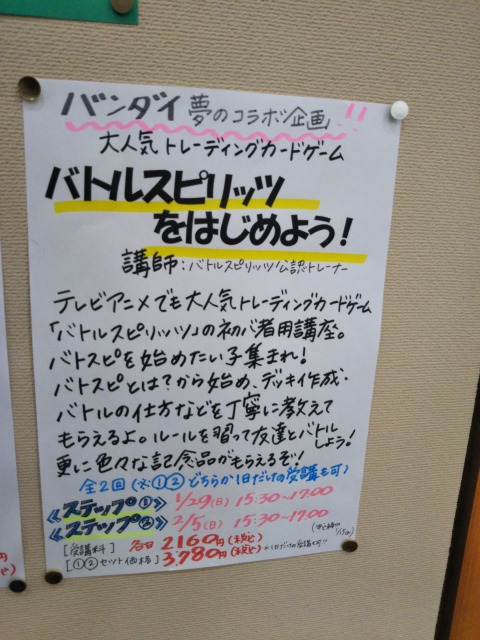 バンダイ 夢のコラボ企画!!
大人気トレーディングカードゲーム
バトルスピリッツ
をはじめよう!
講師:バトルスピリッツ公認トレーナー
テレビアニメでも大人気トレーディングカードゲーム
「バトルスピリッツ」の初心者用講座。
バトスピを始めたい子集まれ!
バトスピとは?から始め、デッキ作成・
バトルの仕方などを丁寧に教えて
もらえるよ。ルールを習って友達とバトルしよう!
更に色々な記念品がもらえるぞ!
全2回(※①②どちらか1日だけの受講も可)
《ステップ①》 1/29(日) 15:30~17:00
《ステップ②》 2/5(日) 15:30~17:00
[受講料] 各日 2160円(税込)
[①②セット価格] 3,780円(税込)